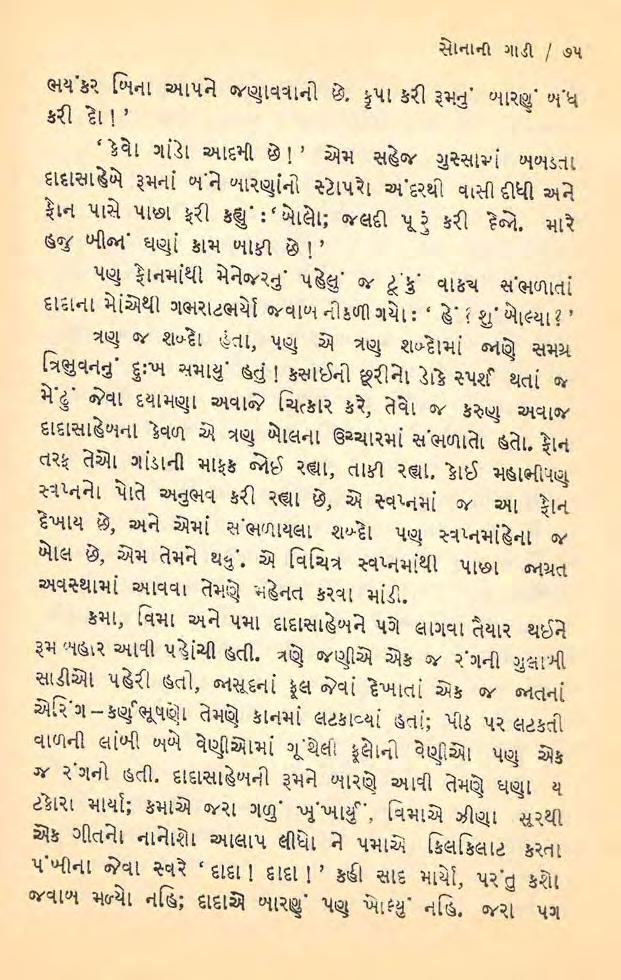 સોનાની ગાડી / ૭૫
ભયંકર બિના આપને જણાવવાની છે. કૃપા કરી રૂમનું બારણું બંધ
કરી દો!’
‘કેવો ગાંડો આદમી છે!’ એમ સહેજ ગુસ્સામાં બબડતા
દાદાસાહેબે રૂમનાં બંને બારણાંની સ્ટોપરો અંદરથી વાસી દીધી અને
ફોન પાસે પાછા ફરી કહ્યું :‘બોલો; જલદી પૂરું કરી દેજો. મારે
હજુ બીજાં ઘણાં કામ બાકી છે!’
પણ ફોનમાંથી મેનેજરનું પહેલું જ ટૂંકું વાકય સંભળાતાં
દાદાના મોંએથી ગભરાટભર્યો જવાબ નીકળી ગયો : ‘હેં ? શું બોલ્યા?’
ત્રણ જ શબ્દો હતા, પણ એ ત્રણ શબ્દોમાં જાણે સમગ્ર
ત્રિભુવનનું દુઃખ સમાયું હતું! કસાઈની છૂરીનો ડોકે સ્પર્શ થતાં જ
મેંઢું જેવા દયામણા અવાજે ચિત્કાર કરે, તેવો જ કરુણ અવાજ
દાદાસાહેબના કેવળ એ ત્રણ બોલના ઉચ્ચારમાં સંભળાતો હતો. ફોન
તરફ તેઓ ગાંડાની માફક જોઈ રહ્યા, તાકી રહ્યા. કોઈ મહાભીષણ
સ્વપ્નનો પોતે અનુભવ કરી રહ્યા છે, એ સ્વપ્નમાં જ આ ફોન
દેખાય છે, અને એમાં સંભળાયલા શબ્દો પણ સ્વપ્નમાંહેના જ
બોલ છે, એમ તેમને થયું. એ વિચિત્ર સ્વપ્નમાંથી પાછા જાગ્રત
અવસ્થામાં આવવા તેમણે મહેનત કરવા માંડી.
ક્રમા, વિમા અને પમા દાદાસાહેબને પગે લાગવા તૈયાર થઈને
રૂમ બહાર આવી પહોંચી હતી. ત્રણે જણીએ એક જ રંગની ગુલાબી
સાડીઓ પહેરી હતી, જાસૂદનાં ફૂલ જેવાં દેખાતાં એક જ જાતનાં
એરિંગ–કર્ણભૂષણો તેમણે કાનમાં લટકાવ્યાં હતાં; પીઠ પર લટકતી
વાળની લાંબી બબે વેણીઓમાં ગૂંથેલી ફૂલોની વેણીઓ પણ એક
જ રંગની હતી. દાદાસાહેબની રૂમને બારણે આવી તેમણે ઘણા ય
ટકોરા માર્યા; ક્રમાએ જરા ગળું ખૂંખાર્યું, વિમાએ ઝીણા સૂરથી
એક ગીતનો નાનોશો આલાપ લીધો ને પમાએ કિલકિલાટ કરતા
પંખીના જેવા સ્વરે ‘દાદા! દાદા!’ કહી સાદ માર્યો, પરંતુ કશો
જવાબ મળ્યો નહિ; દાદાએ બારણું પણ ખોલ્યું નહિ. જરા પગ